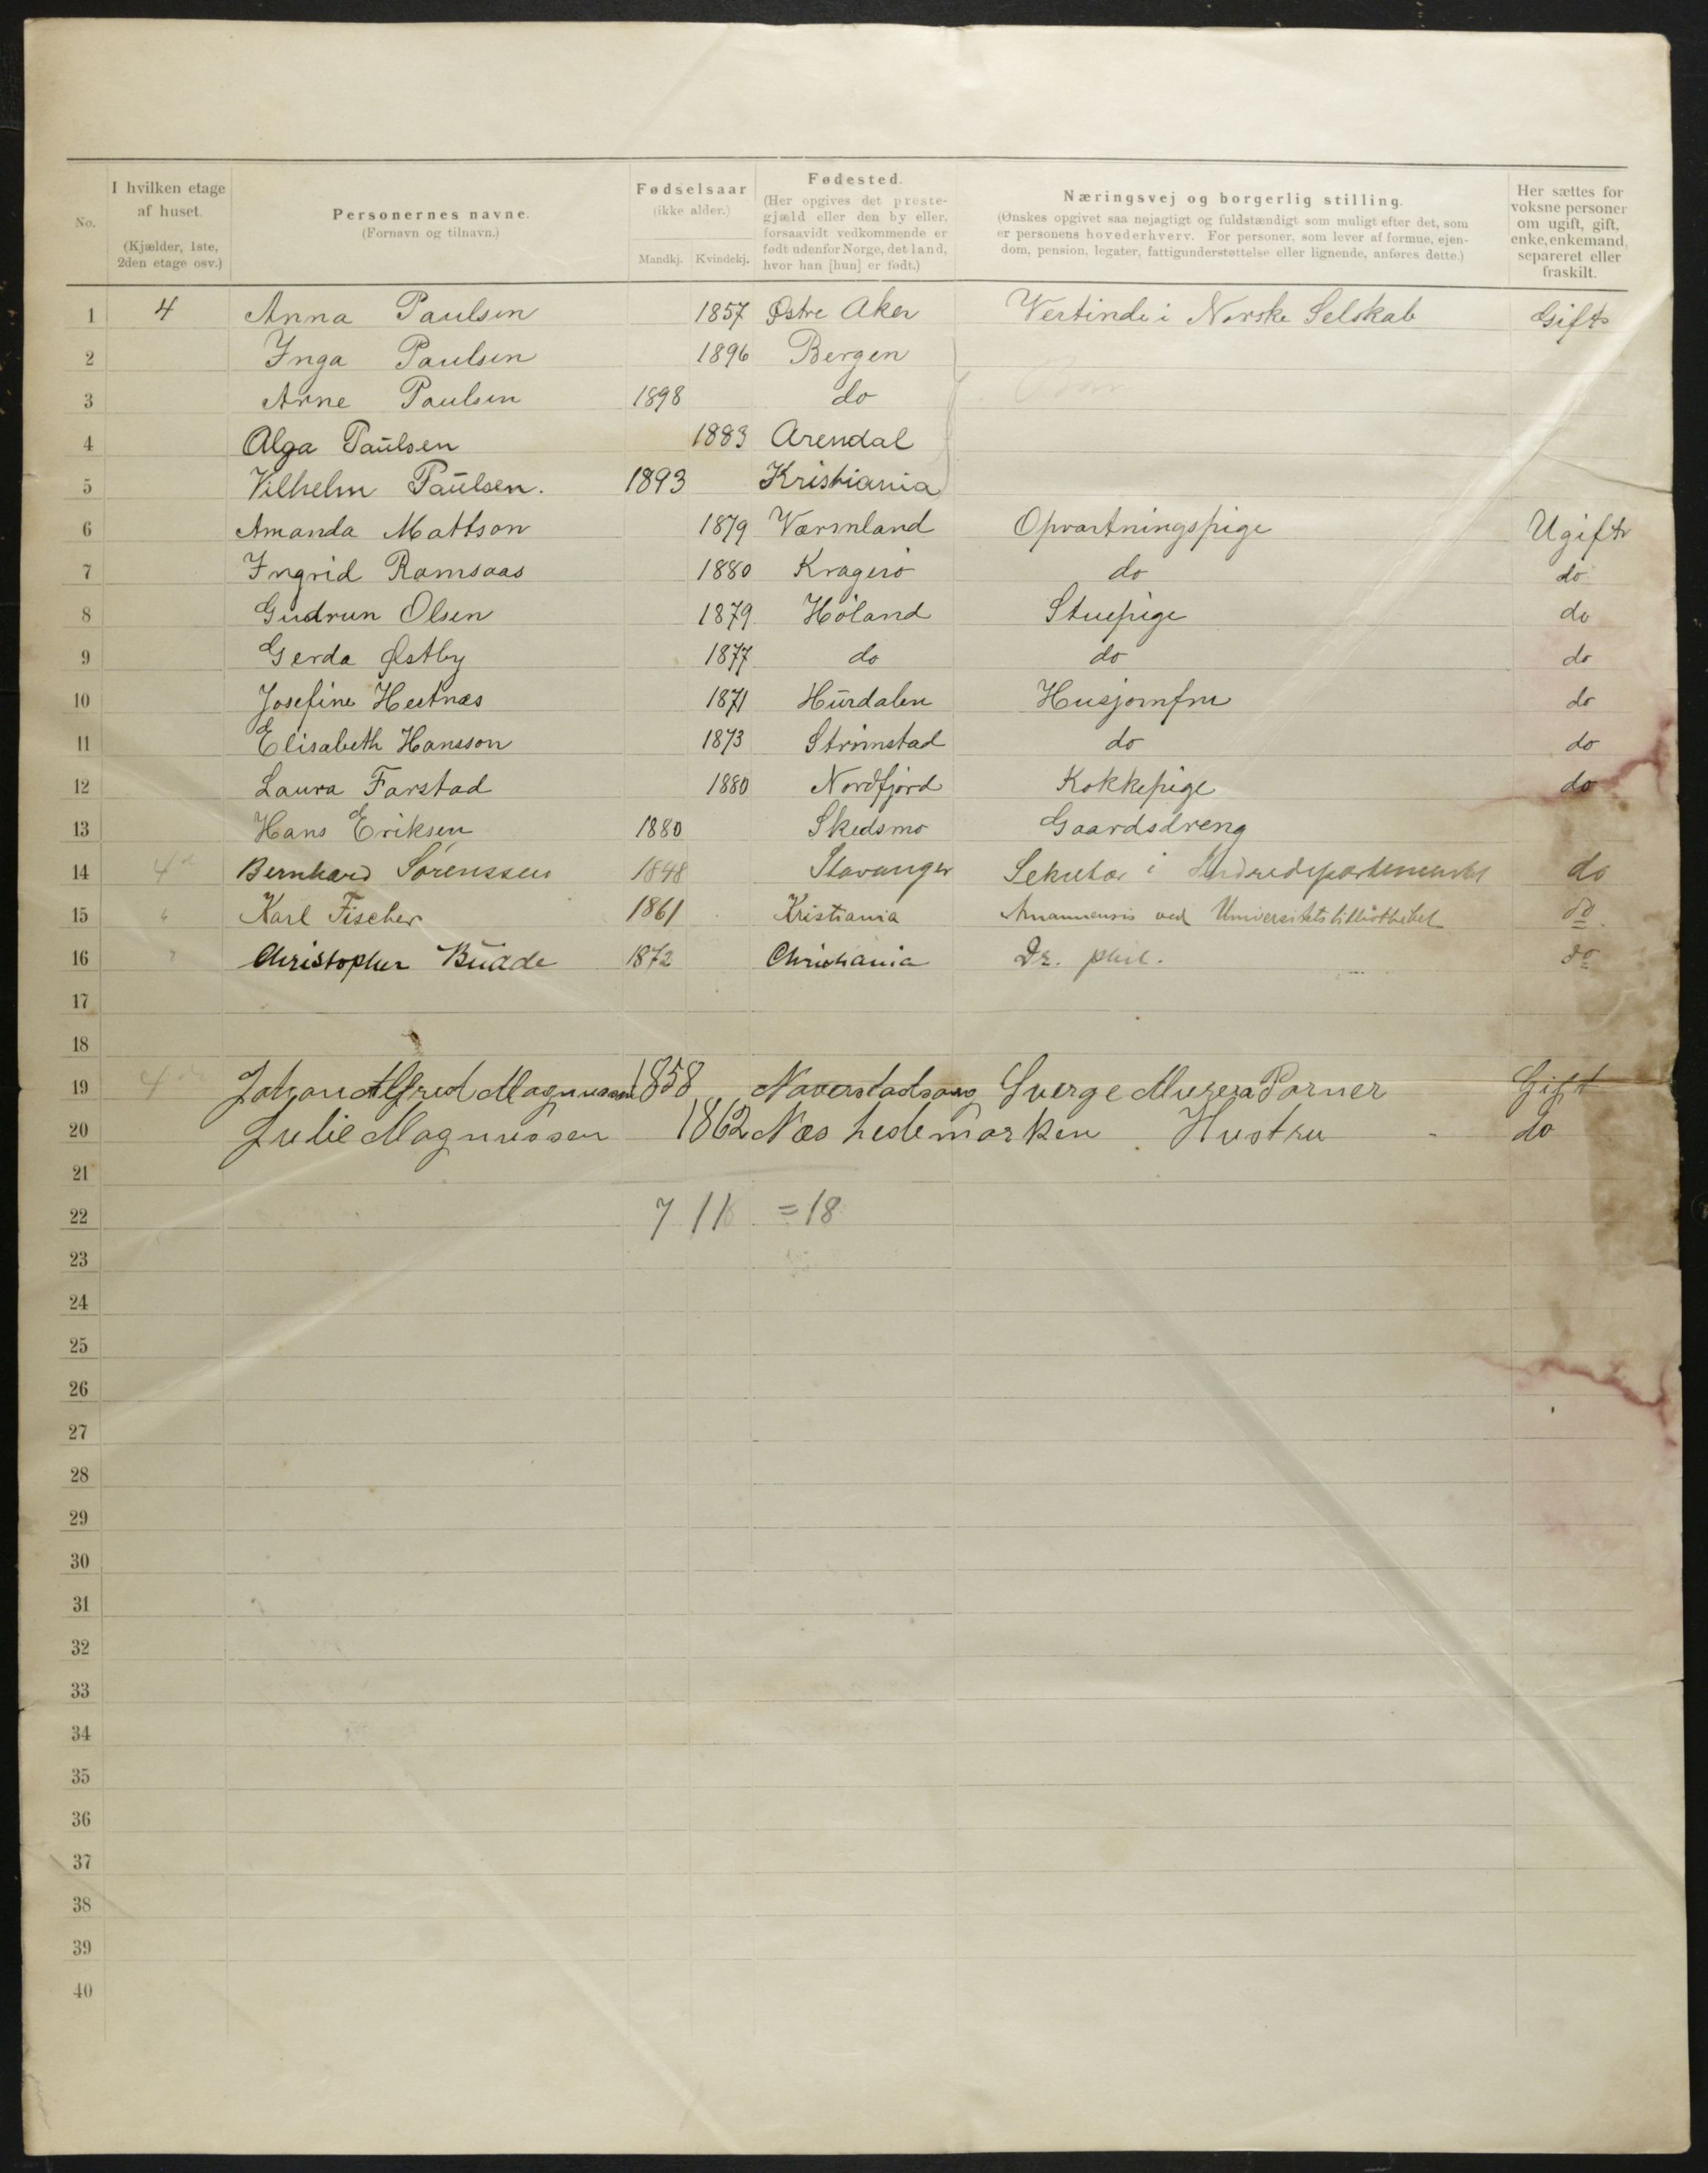 No. | I hvilken etage af huset. (Kjælder, 1ste, 2den etage osv.) | Personernes navne. (Fornavn og tilnavn.) | Fødselsaar (ikke alder.) Mandkj. Kvindekj. | Fødested. (Her opgives det prestegjæld eller den by eller, forsaavidt vedkommende er født udenfor Norge, det land, hvor han [hun] er født.) | Næringsvej og borgerlig stilling. (Ønskes opgivet saa nøjagtigt og fuldstændigt som muligt efter det, som er personens hovederhverv. For personer, som lever af formue, ejendom, pension, legater, fattigunderstøttelse eller lignende, anføres dette.) | Her sættes for voksne personer om ugift, gift, enke, enkemand, separeret eller fraskilt.
1 4 Anna Paulsen 1857 Østre Aker Vertinde i Norske Selskab Gift
2 Inga Paulsen 1896 Bergen
3 Arne Paulsen 1898 do Barn
4 Olga Paulsen 1883 Arendal
5 Vilhelm Paulsen. 1893 Kristiania
6 Amanda Mattson 1879 Værmland Opvartningspige Ugift
7 Ingrid Ramsaas 1880 Kragerø do do
8 Gudrun Olsen 1879 Høland Stuepige do
9 Gerda Østby 1877 do do do
10 Josefine Hestnæs 1871 Hurdalen Husjomfru do
11 Elisabeth Hansson 1873 Strømstad do do
12 Laura Farstad 1880 Nordfjord Kokkepige do
13 Hans Eriksen 1880 Skedsmo Gaardsdreng
14 4 Bernhard Sørenssen 1848 Stavanger Sekretær i Indredepartementet do
15 Karl Fischer 1861 Kristiania Amanuensis ved Universitetsbibliotheket do.
16 Christopher 1872 Christiania Dr. phil. do
17
18
19 4 Johan Alfred Magnussen 1858 Sverge Gift
20 Julie Magnussen 1862 Næs hedemarken Hustru do
21
22 7 11 = 18
23
24
25
26
27
28
29
30
31
32
33
34
35
36
37
38
39
40